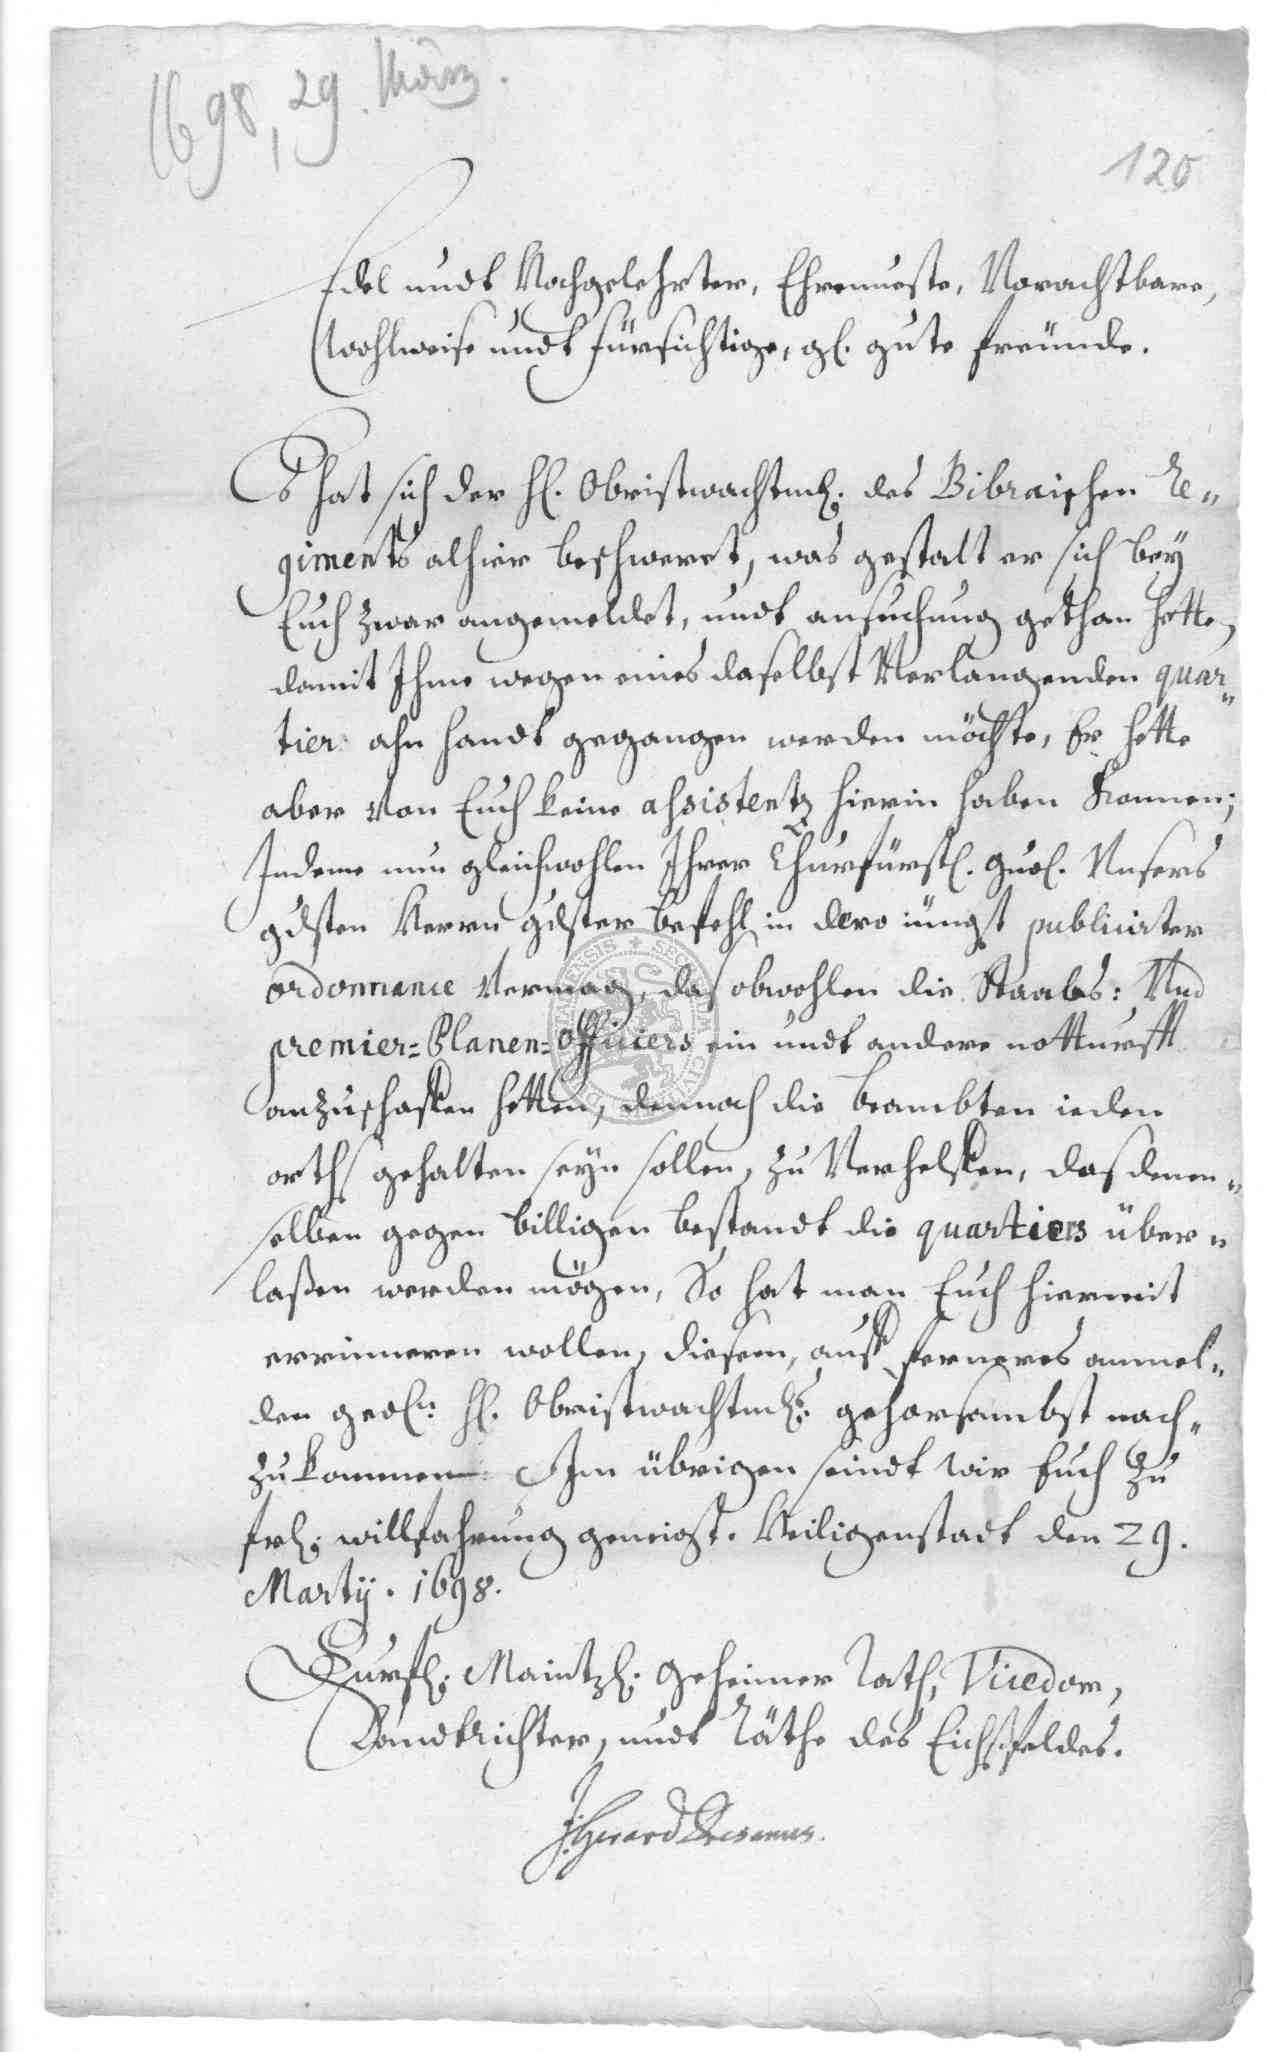 1698, 29. März.
120
Edel undt Hochgelehrter, Ehrnueste, Vorachtbare,
Wohlweise undt fürsichtige, gl. gute freünde.
Es hat sich der Hl. Obristwachtmr. des Bibraischen Re-
giments alhier beschweret, was gestalt er sich bey
Euch zwar angemeldet, undt ansuchung gethan hette,
damit Ihme wegen eines daselbst Verlangenden quar-
tier ahn handt gegangen werden möchte, Er hette
aber von Euch keine assistentz hierin haben können;
Indeme nun gleichwohlen Ihrer Churfürstl. Gnd. Unsers
gdsten Herrn gdster befehl in dero iüngst publicirter
ordonnance Vermag, das obwohlen die Staabs: Und
premier=Planen=Officiers ein undt andere notturfft
anzuschaffen hetten, dennoch die beambten ieden
orths gehalten seyn sollen, zu Verhelffen, das denen-
selben gegen billigen bestandt die quartiers über-
laßen werden mögen, So hat man Euch hiermit
errinneren wollen, diesem, auff ferneres anmel-
den gedln. Hl. Obristwachtmrs. gehorsambst nach-
zukommen. Im übrigen seindt wir Euch zu
frl. willfahrung geneigt. Heiligenstadt den 29.
Martij. 1698.
Churfl. Maintzl. Geheimer Rath, Vicedom,
Landtrichter, undt Räthe des Eichsfeldes.